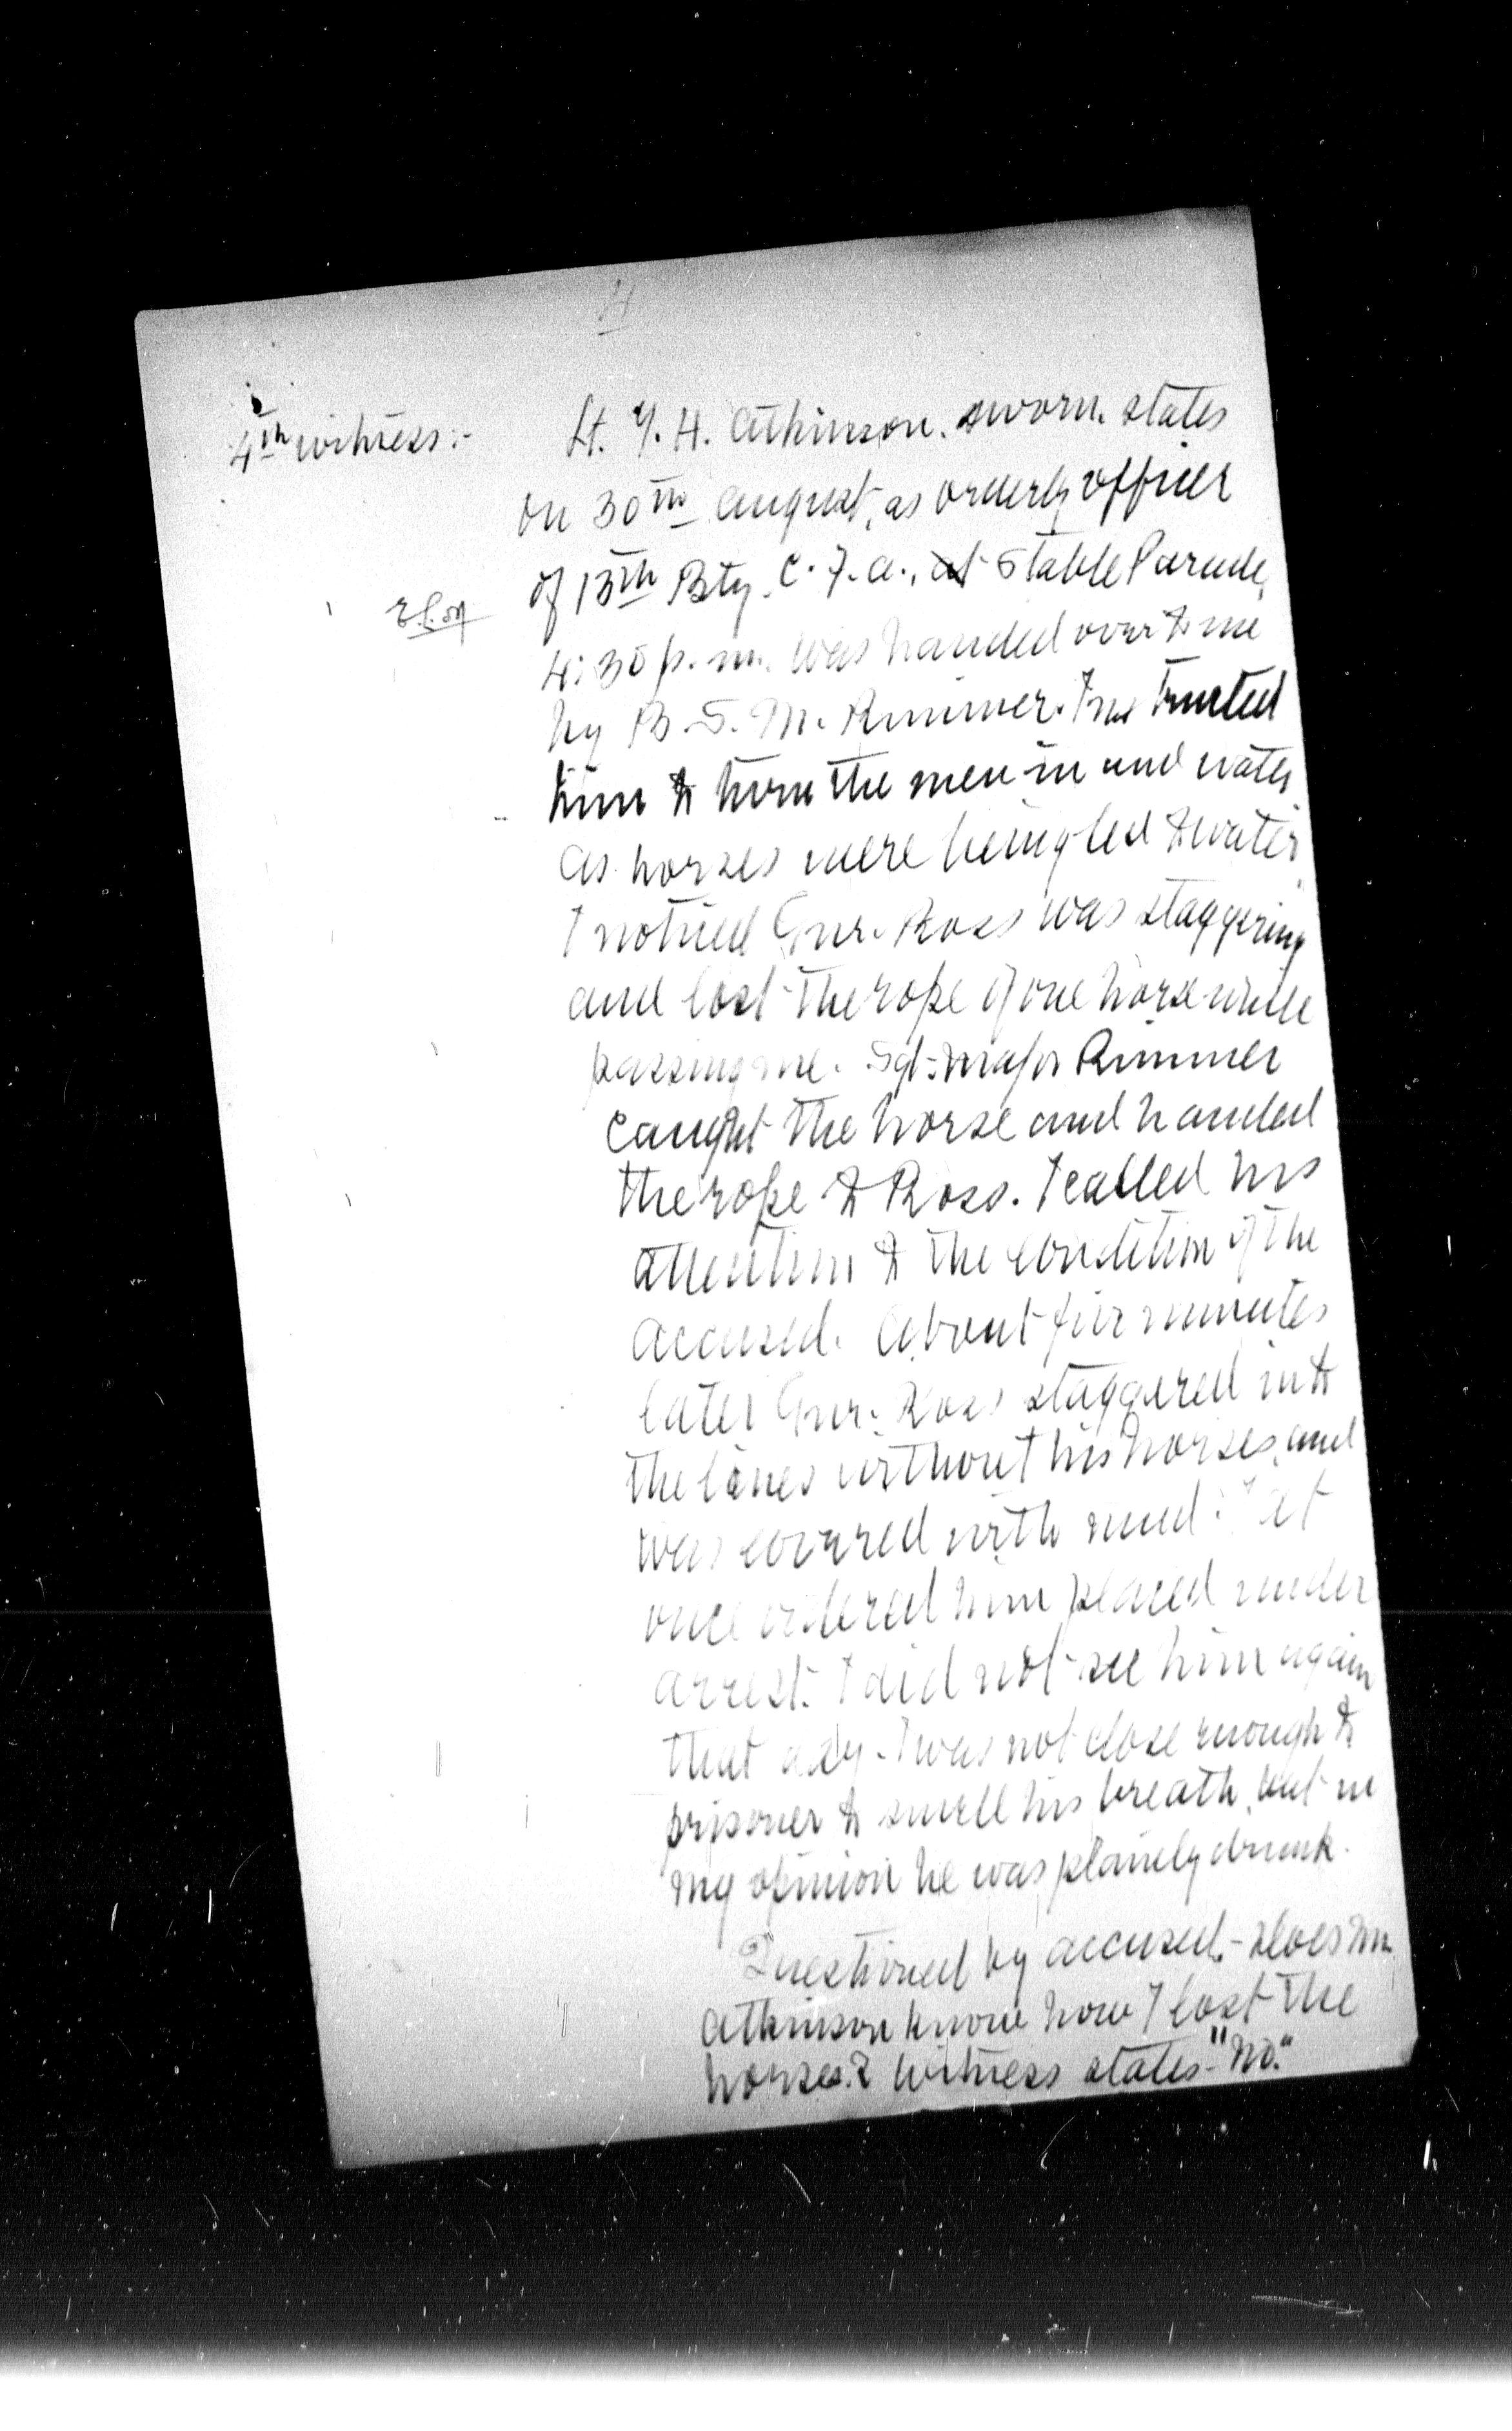 4
4th witness:- Lt. Y. H. Atkinson. sworn. states
on 30th August, as orderly officer
of 13th Bty. C. F. A., at Stable Parade,
4:30 p.m. was handed over to me
by B. S. M. Rimmer. I instructed
him to turn the men in and water.
As horses were being led to water
I noticed Gnr. Ross was staggering
and lost the rope of one horse while
passing me. Sgt-Major Rimmer
caught the horse and handed
the rope to Ross. I called his
attention to the condition of the
accused. About five minutes
later Gnr. Ross staggered into
the lines without his horses, and
was covered with mud. I at
once ordered him placed under
arrest. I did not see him again
that day. I was not close enough to
prisoner to smell his breath, but in
my opinion he was plainly drunk.
Questioned by accused.- does Mr.
Atkinson know how I lost the
horses? Witness states - "No."